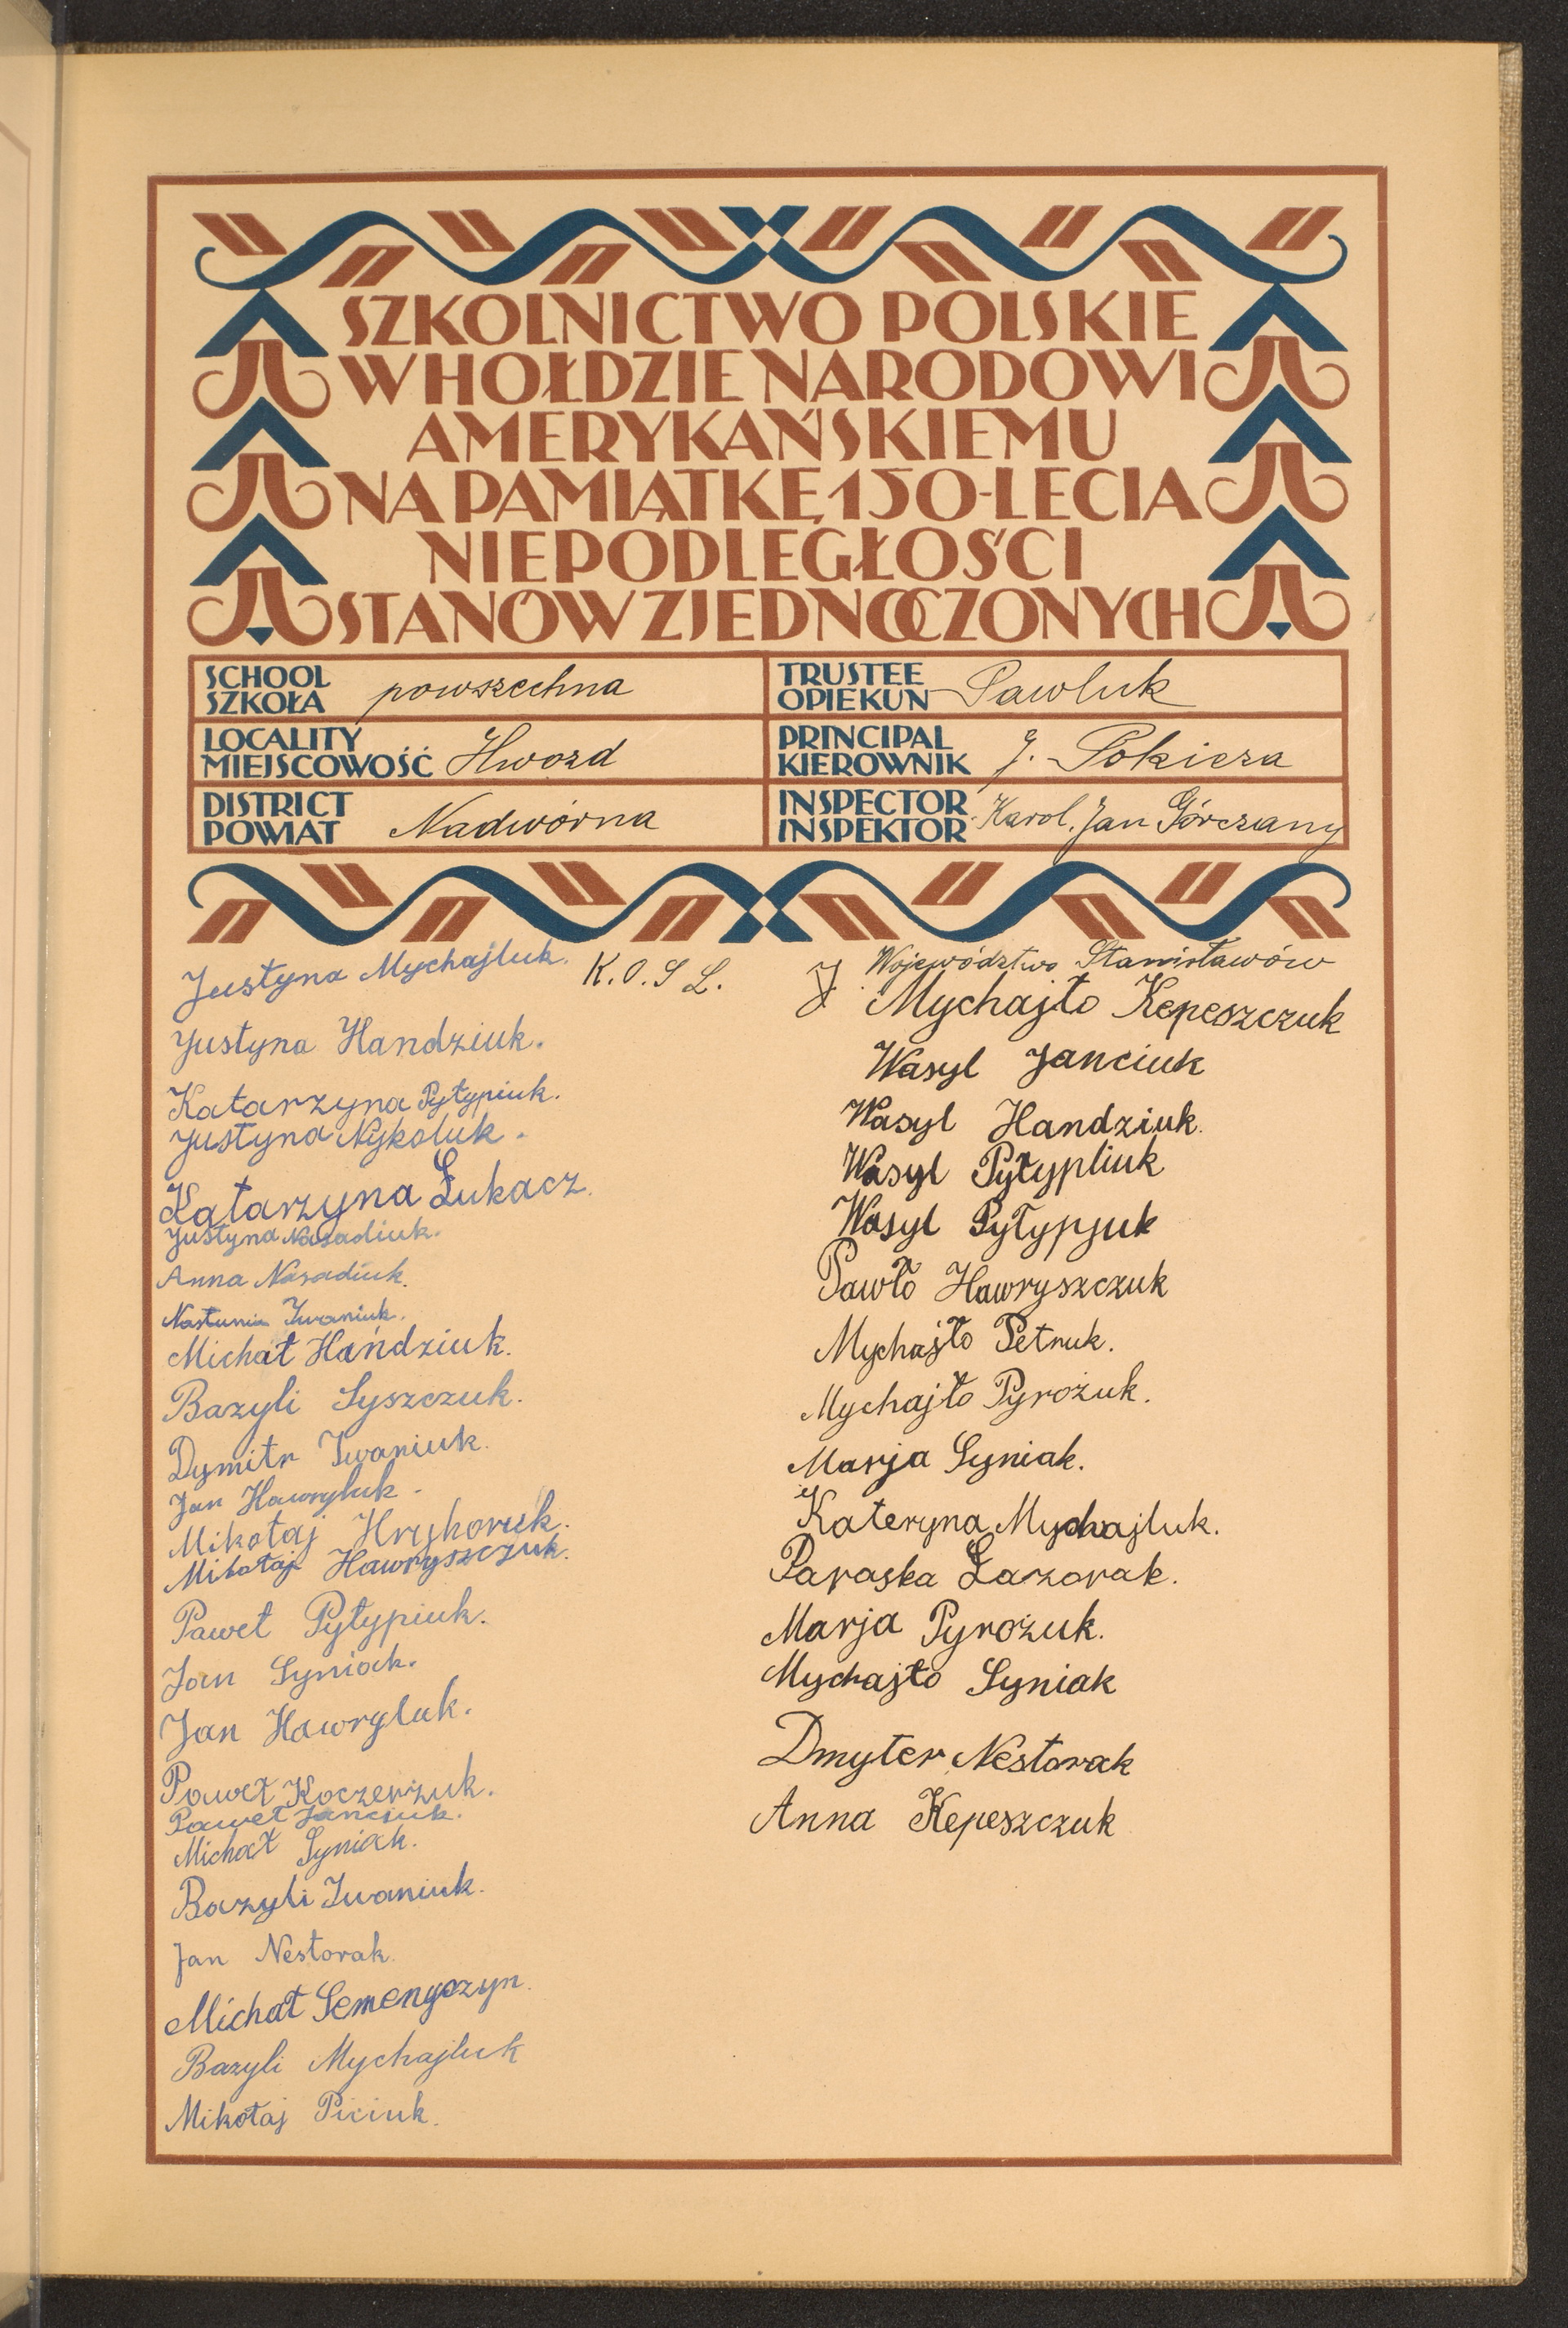 SZKOLNICTWO POLSKIE
W HOŁDZIE NARODOWI
AMERYKAŃSKIEMU
NA PAMIĄTKĘ 150-LECIA
NIEPODLEGŁOŚCI
STANÓW ZJEDNOCZONYCH
SCHOOL
SZKOŁA powszechna
TRUSTEE
OPIEKUN Pawluk
LOCALITY
MIEJSCOWOŚĆ Hwozd
PRINCIPAL
KIEROWNIK J. Pokiza
DISTRICT
POWIAT Nadwórna
INSPECTOR
INSPEKTOR Karol Jan Górczany
Justyna Mychajluk. K.O.S L.
Justyna Handziuk.
Katarzyna Pyłypiuk.
Justyna Nykoluk.
Katarzyna Łukacz.
Justyna Nasadiuk.
Anna Nasadiuk.
Nastunia Iwaniuk.
Michał Hańdziuk.
Bazyli Syszczuk.
Dymitr Iwaniuk.
Jan Hawryluk.
Mikołaj Hryhoruk.
Mikołaj Hawryszczuk.
Paweł Pyłypiuk.
Jan Syniak.
Jan Hawryluk.
Paweł Koczerżuk.
Paweł Janciuk.
Michał Syniak.
Bazyli Iwaniuk.
Jan Nestorak.
Michał Semenyczyn.
Bazyli Mychajluk
Mikołaj Piciuk.
Województwo Stanisławów
Mychajło Kepeszczuk
Wasyl Janciuk
Wasyl Handziuk.
Wasyl Pyłypliuk
Wasyl Pyłypjuk
Pawło Hawryszczuk
Mychajło Petruk.
Mychajło Pyrożuk.
Marja Syniak.
Kateryna Mychajluk.
Paraska Łazorak.
Marja Pyrożuk.
Mychajło Syniak
Dmyter Nestorak
Anna Kepeszczuk